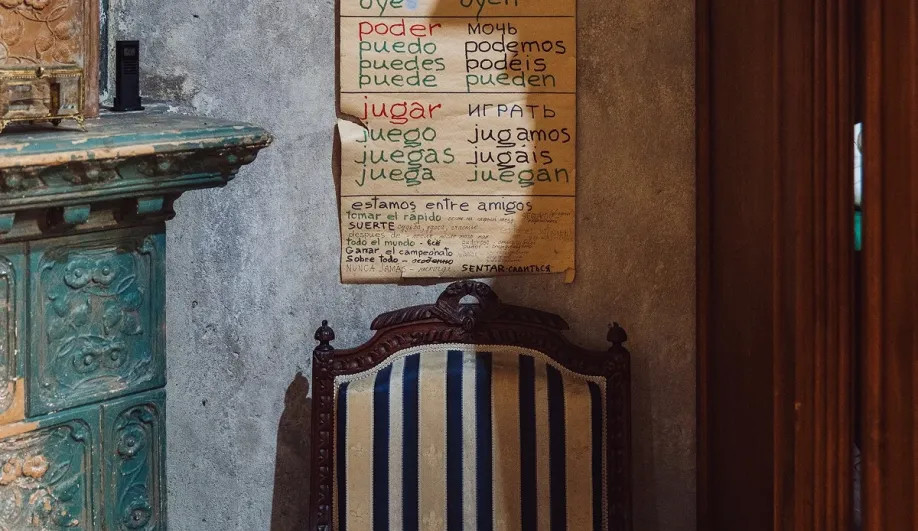 oye oyen
poder мочь
puedo podemos
puedes podéis
puede pueden
jugar играть
juego jugamos
juegas jugais
juega juegan
estamos entre amigos
Tomar el rápido
SUERTE
despues de
todo el mundo - все
Ganar el campeonato
Sobre todo - особенно
NUNCA JAMAS - никогда SENTAR-САДИТЬСЯ